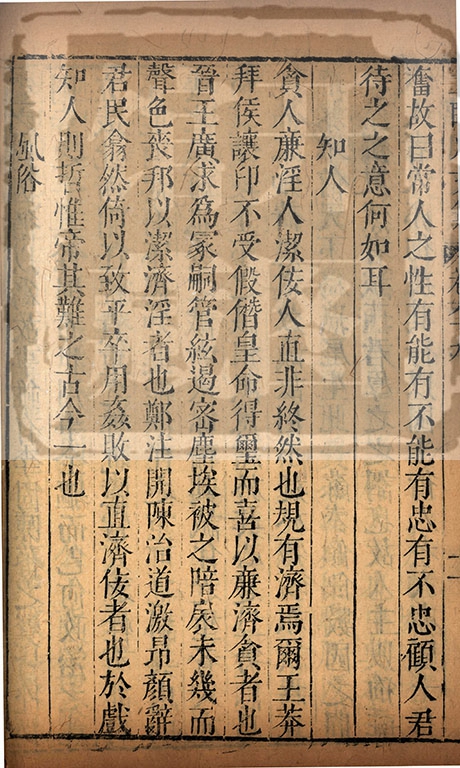 奮故曰常人之性有能有不能有忠有不忠顧人君
待之之意何如耳
知人
貪人廉淫人潔佞人直非終然也規有濟焉爾王莽
拜侯讓印不受假僭皇命得璽而喜以廉濟貪者也
晉王廣求爲冡嗣管絃遏密塵埃被之陪扆未幾而
聲色喪邦以潔濟淫者也鄭注開陳治道激昂顏辭
君民翕然倚以致平卒用姦敗以直濟佞者也於戲
知人則哲惟帝其難之古今一也
風俗